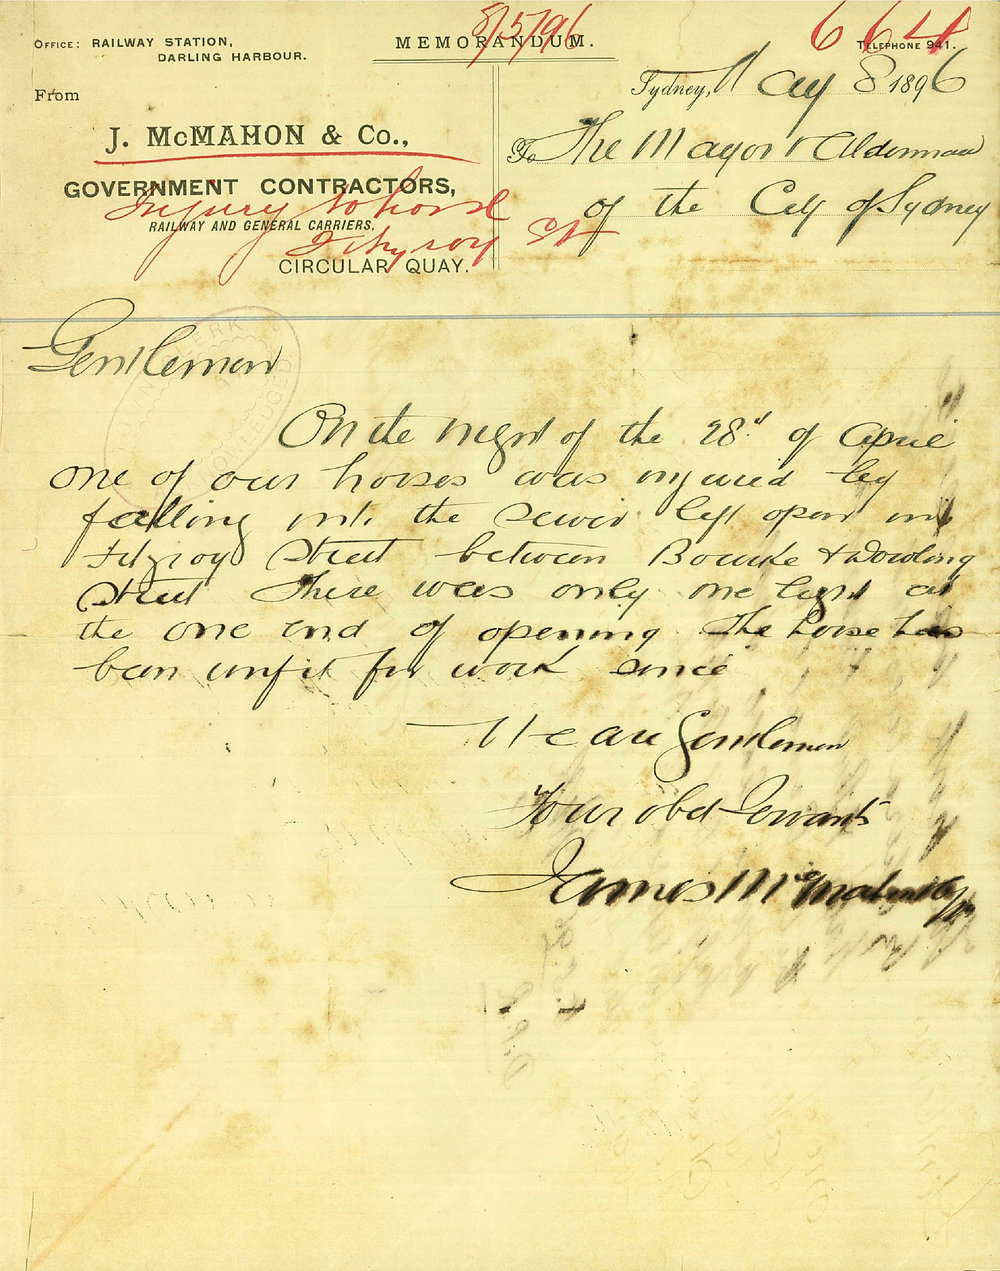 8/5/96
664
OFFICE: RAILWAY STATION,
DARLING HARBOUR.
MEMORANDUM.
TELEPHONE 941.
From
Sydney, May 8 1896
J. McMAHON & Co.,
To The Mayor & Aldermen
of the City of Sydney
GOVERNMENT CONTRACTORS,
Injury to horse
RAILWAY AND GENERAL CARRIERS.
Fitzroy St
CIRCULAR QUAY.
Gentlemen
On the night of the 28th of April
one of our horses was injured by
falling into the sewer left open in
Fitzroy Street between Bourke & Dowling
Street There was only one light at
the one end of opening The horse has
been unfit for work since
We are Gentlemen
Your obd Servants
James McMahon & Co